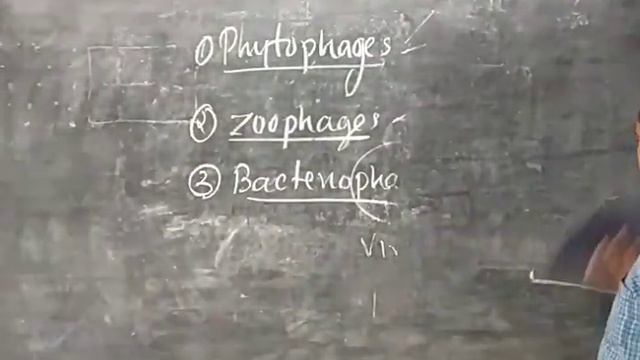 ① Phytophages
② Zoophages
③ Bacteriopha